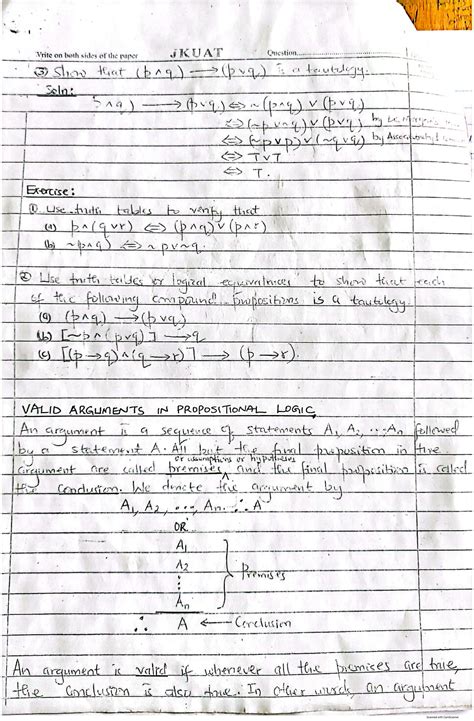 Write on both sides of the paper JKUAT Question
③ Show that (p∧q) ⟶ (p∨q) is a tautology.
Soln:
p∧q) ⟶ (p∨q) ⇔ ~(p∧q) ∨ (p∨q)
⇔ (~p∨~q) ∨ (p∨q) by
⇔ (~p∨p) ∨ (~q∨q) by
⇔ T∨T
⇔ T.
Exercise:
① Use truth tables to verify that
(a) p∧(q∨r) ⇔ (p∧q)∨(p∧r)
(b) ~p∧q) ⇔ ~p∨~q.
② Use truth tables or logical equivalences to show that each
of the following compound propositions is a tautology.
(a) (p∧q) ⟶ (p∨q)
(b) [~p∧(p∨q)] ⟶ q
(c) [(p→q)∧(q→r)] ⟶ (p→r).
VALID ARGUMENTS IN PROPOSITIONAL LOGIC,
An argument is a sequence of statements A₁, A₂, ... An followed
by a statement A. All but the final proposition in the
or assumptions or hypotheses
argument are called premises, and the final proposition is called
the conclusion. We denote the argument by
A₁, A₂, ..., An. ∴ A
OR
A₁
A₂
⋮ Premises
An
∴ A ← Conclusion
An argument is valid if whenever all the premises are true,
the conclusion is also true. In other words, an argument